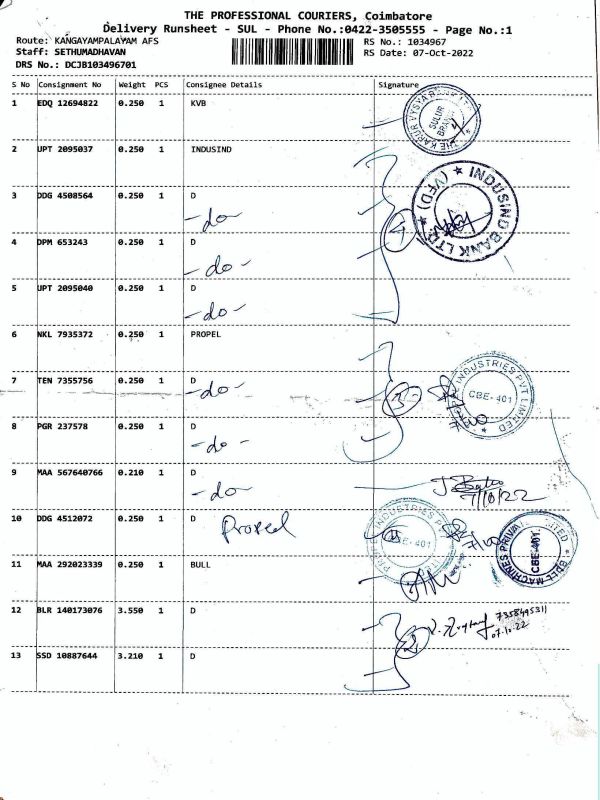 THE PROFESSIONAL COURIERS, Coimbatore
Delivery Runsheet - SUL - Phone No.:0422-3505555 - Page No.:1
Route: KANGAYAMPALAYAM AFS RS No.: 1034967
Staff: SETHUMADHAVAN RS Date: 07-Oct-2022
DRS No.: DCJB103496701
S No Consignment No Weight PCS Consignee Details Signature
1 EDQ 12694822 0.250 1 KVB
THE KARUR VYSYA
SULUR
BRANCH
2 UPT 2095037 0.250 1 INDUSIND
INDUSIND BANK LTD. (VFD)
3 DDG 4508564 0.250 1 D
-do-
4 DPM 653243 0.250 1 D
-do-
5 UPT 2095040 0.250 1 D
-do-
6 NKL 7935372 0.250 1 PROPEL
INDUSTRIES PVT LIMITED
CBE-401
7 TEN 7355756 0.250 1 D
-do-
3
8 PGR 237578 0.250 1 D
-do-
9 MAA 567640766 0.210 1 D
-do-
7/10/22
10 DDG 4512072 0.250 1 D
Propel
INDUSTRIES PVT
CBE-401
BULL MACHINES PRIVATE LIMITED
CBE-401
11 MAA 292023339 0.250 1 BULL
12 BLR 140173076 3.550 1 D
2
7358495311
07.10.22
13 SSD 10887644 3.210 1 D